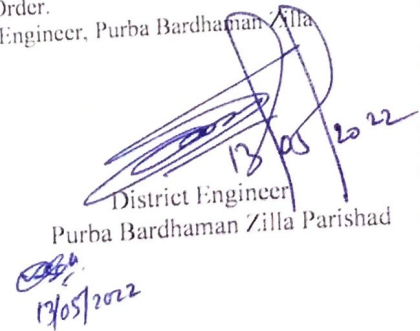 Order.
Engineer, Purba Bardhaman Zilla
13/05/2022
District Engineer
Purba Bardhaman Zilla Parishad
13/05/2022